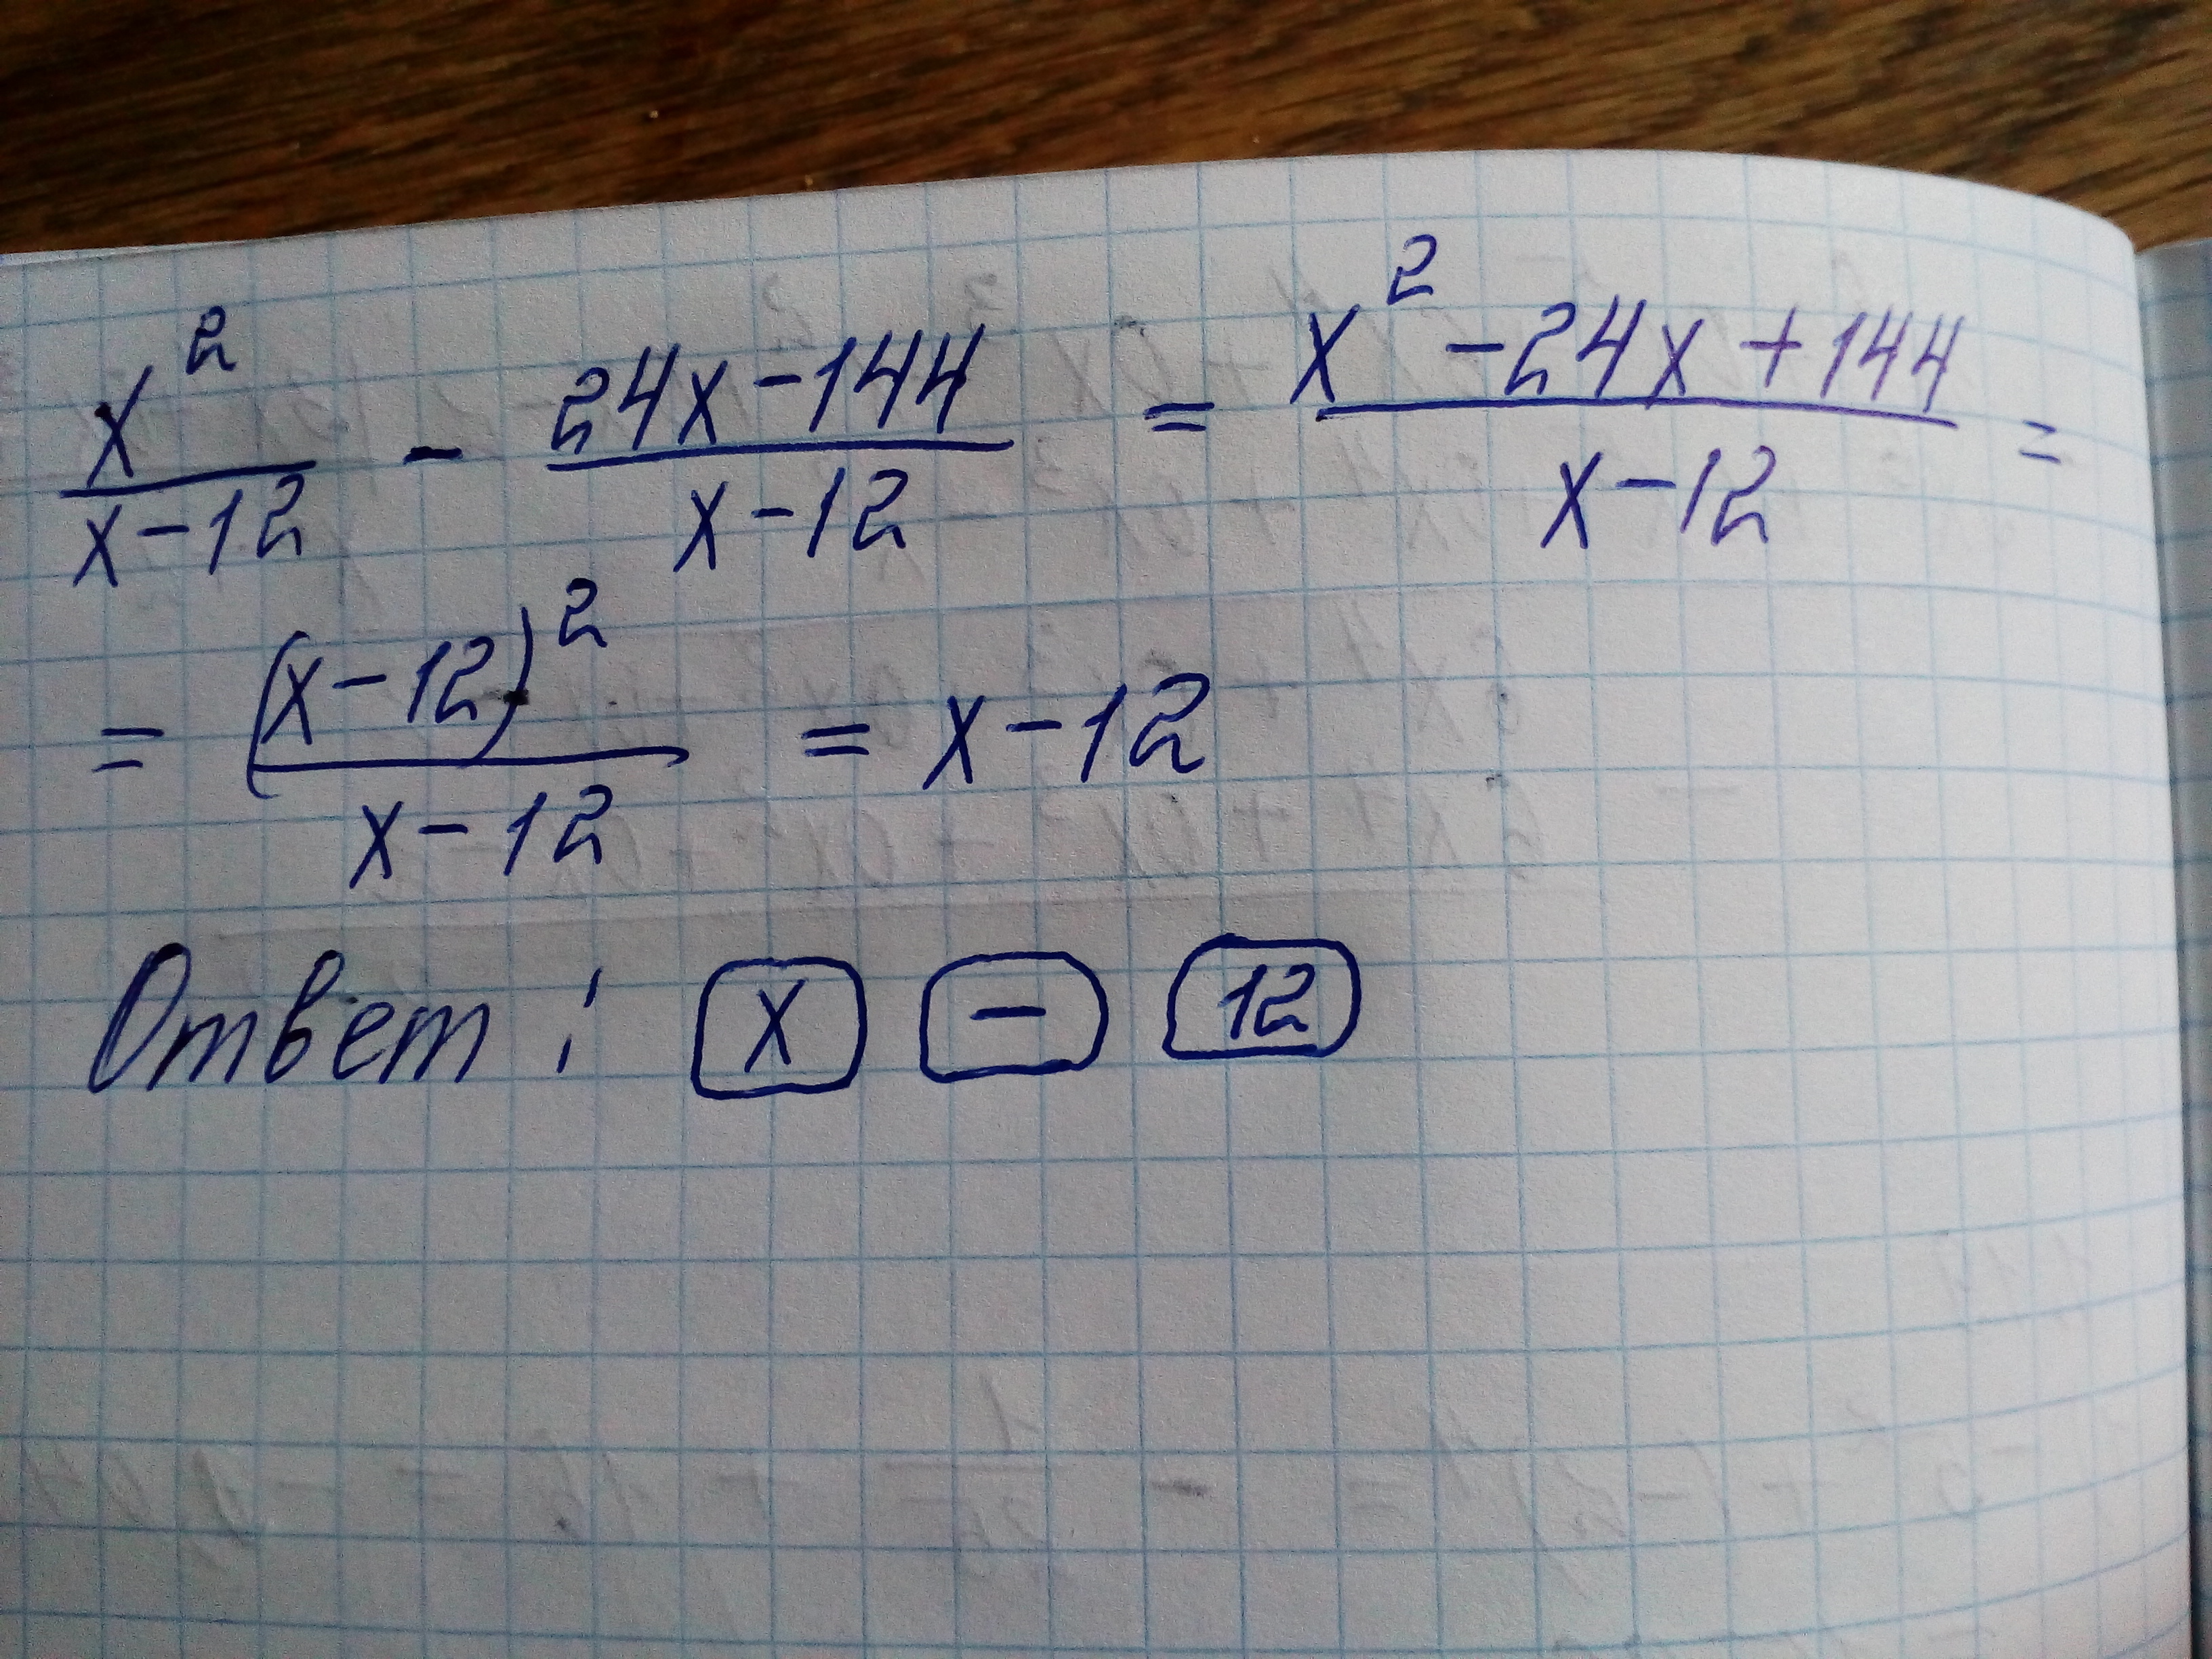 x²/(x-12) - (24x-144)/(x-12) = (x²-24x+144)/(x-12) =
= (x-12)²/(x-12) = x-12
Ответ: x - 12